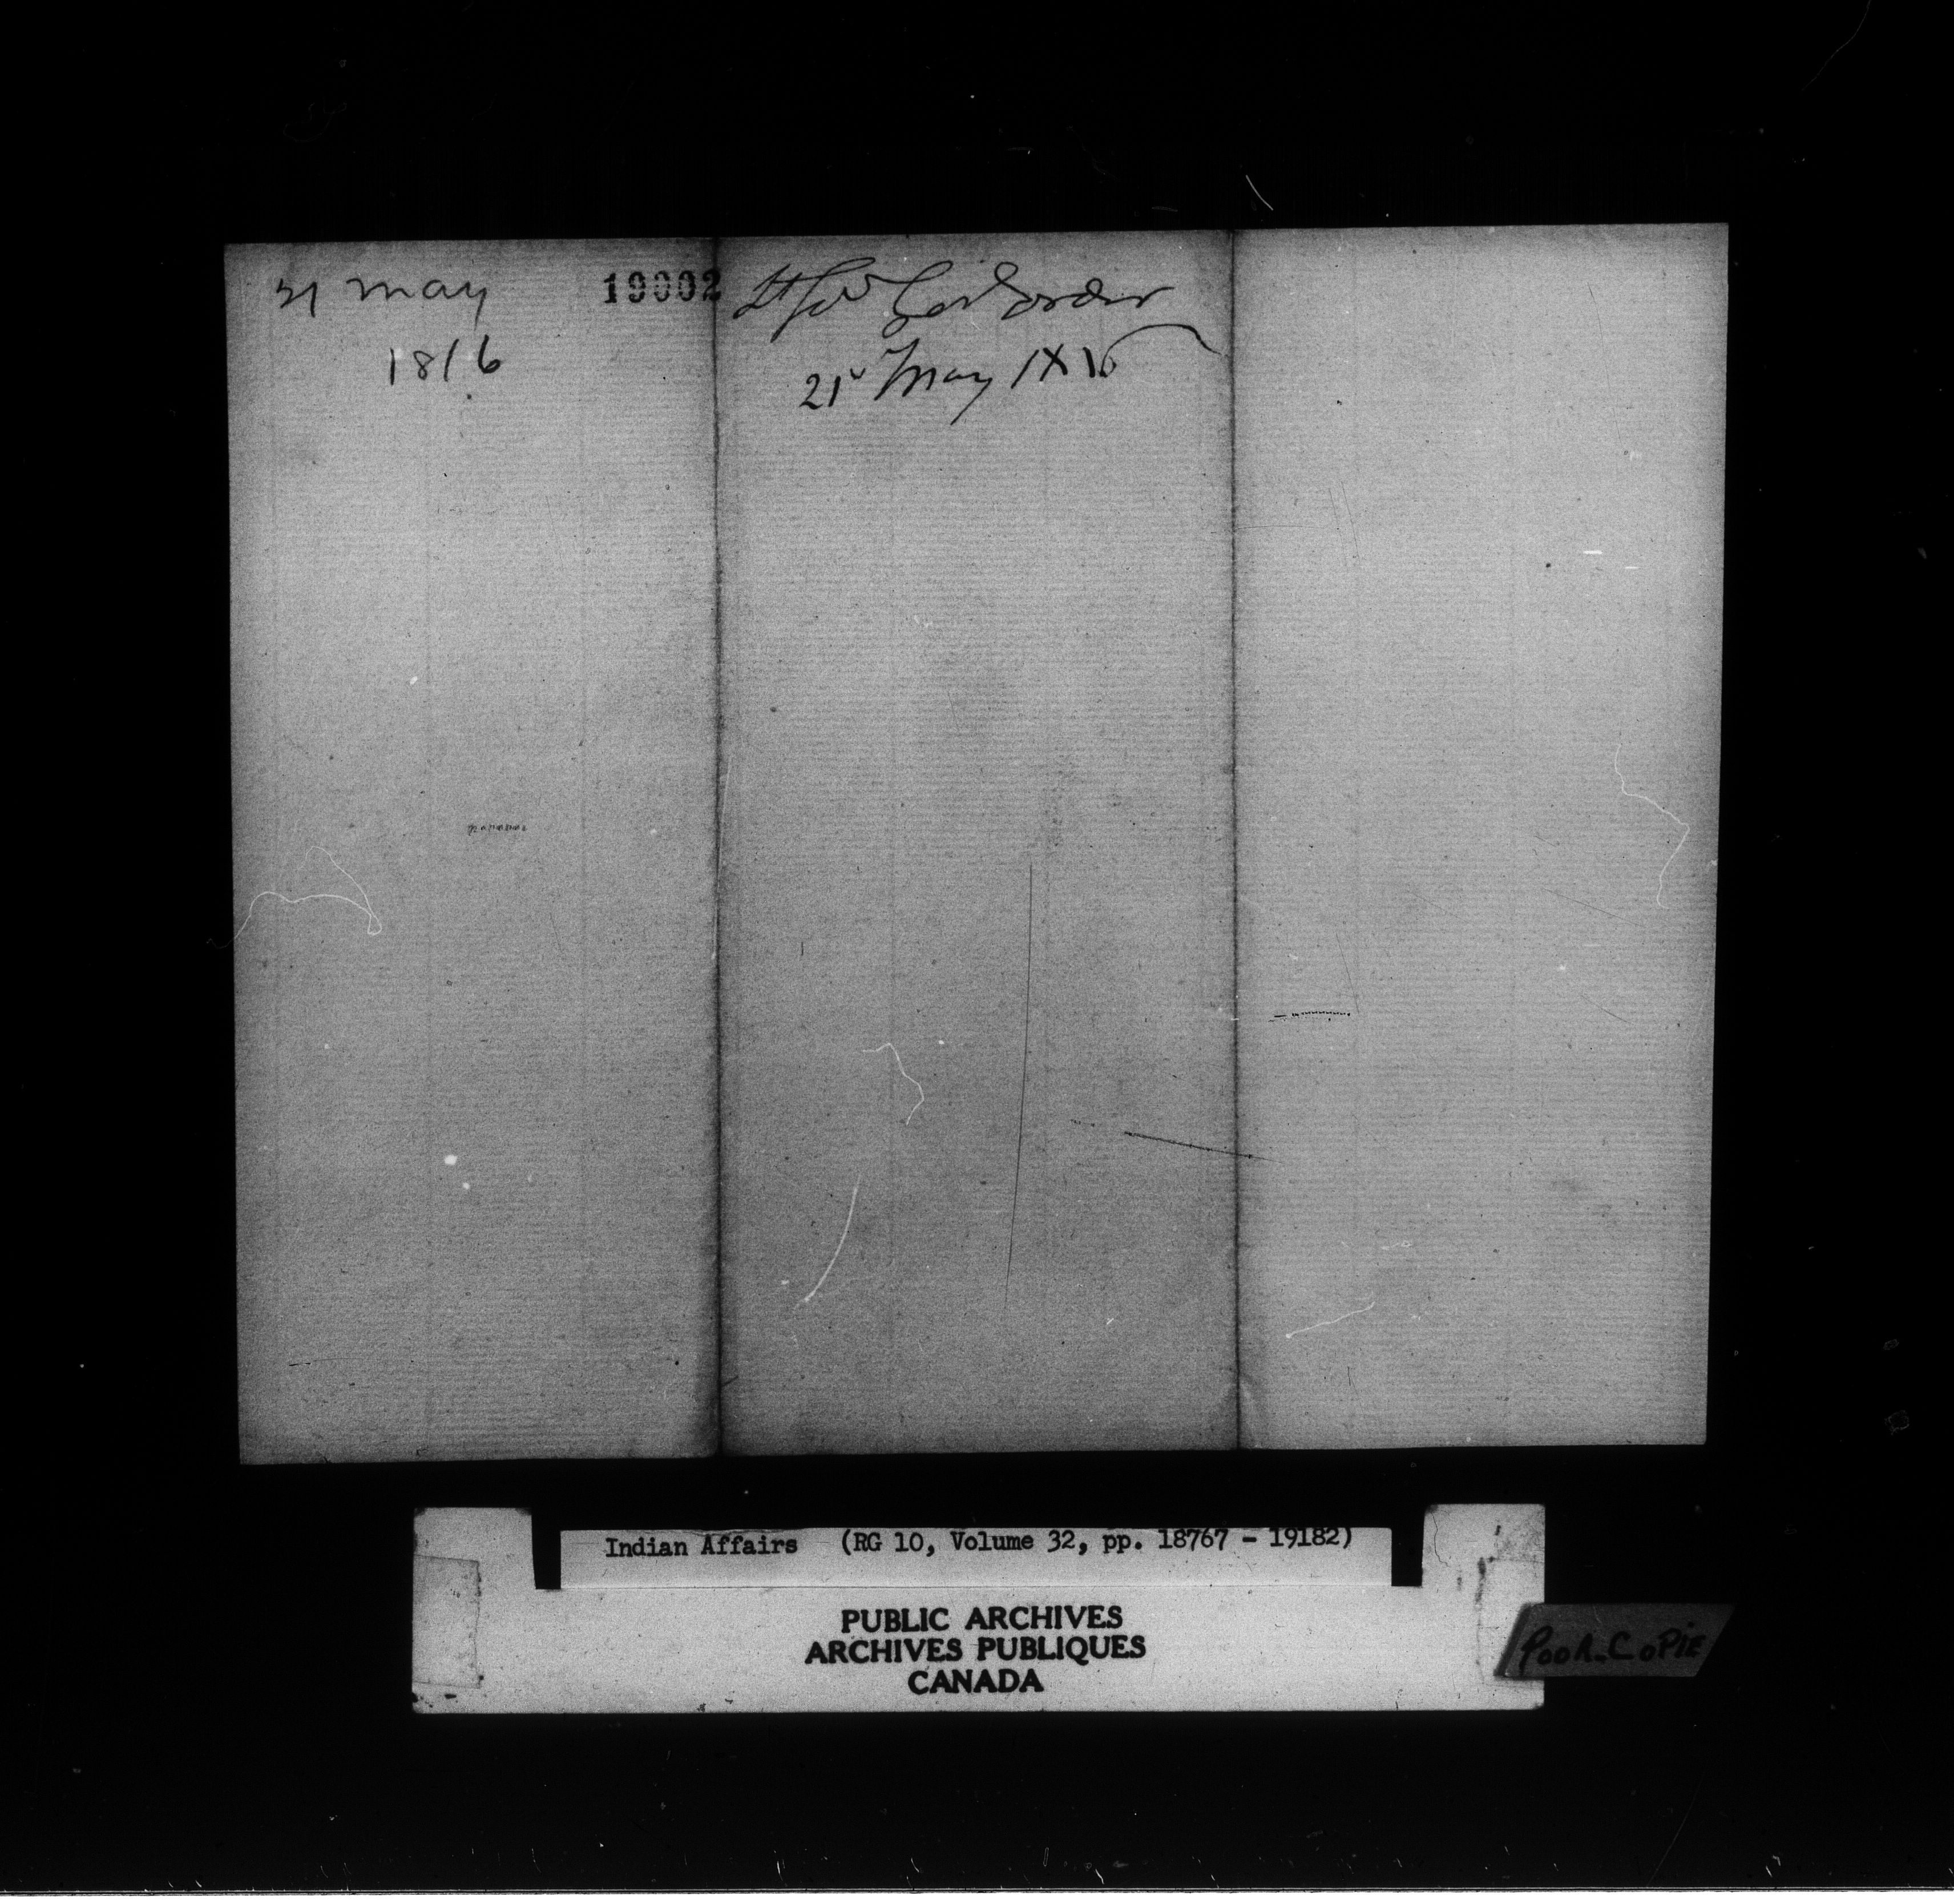 21 May
1816
19002
Lt Govr
21st May 1816
Indian Affairs (RG 10, Volume 32, pp. 18767 - 19182)
PUBLIC ARCHIVES
ARCHIVES PUBLIQUES
CANADA
POOR_COPIE